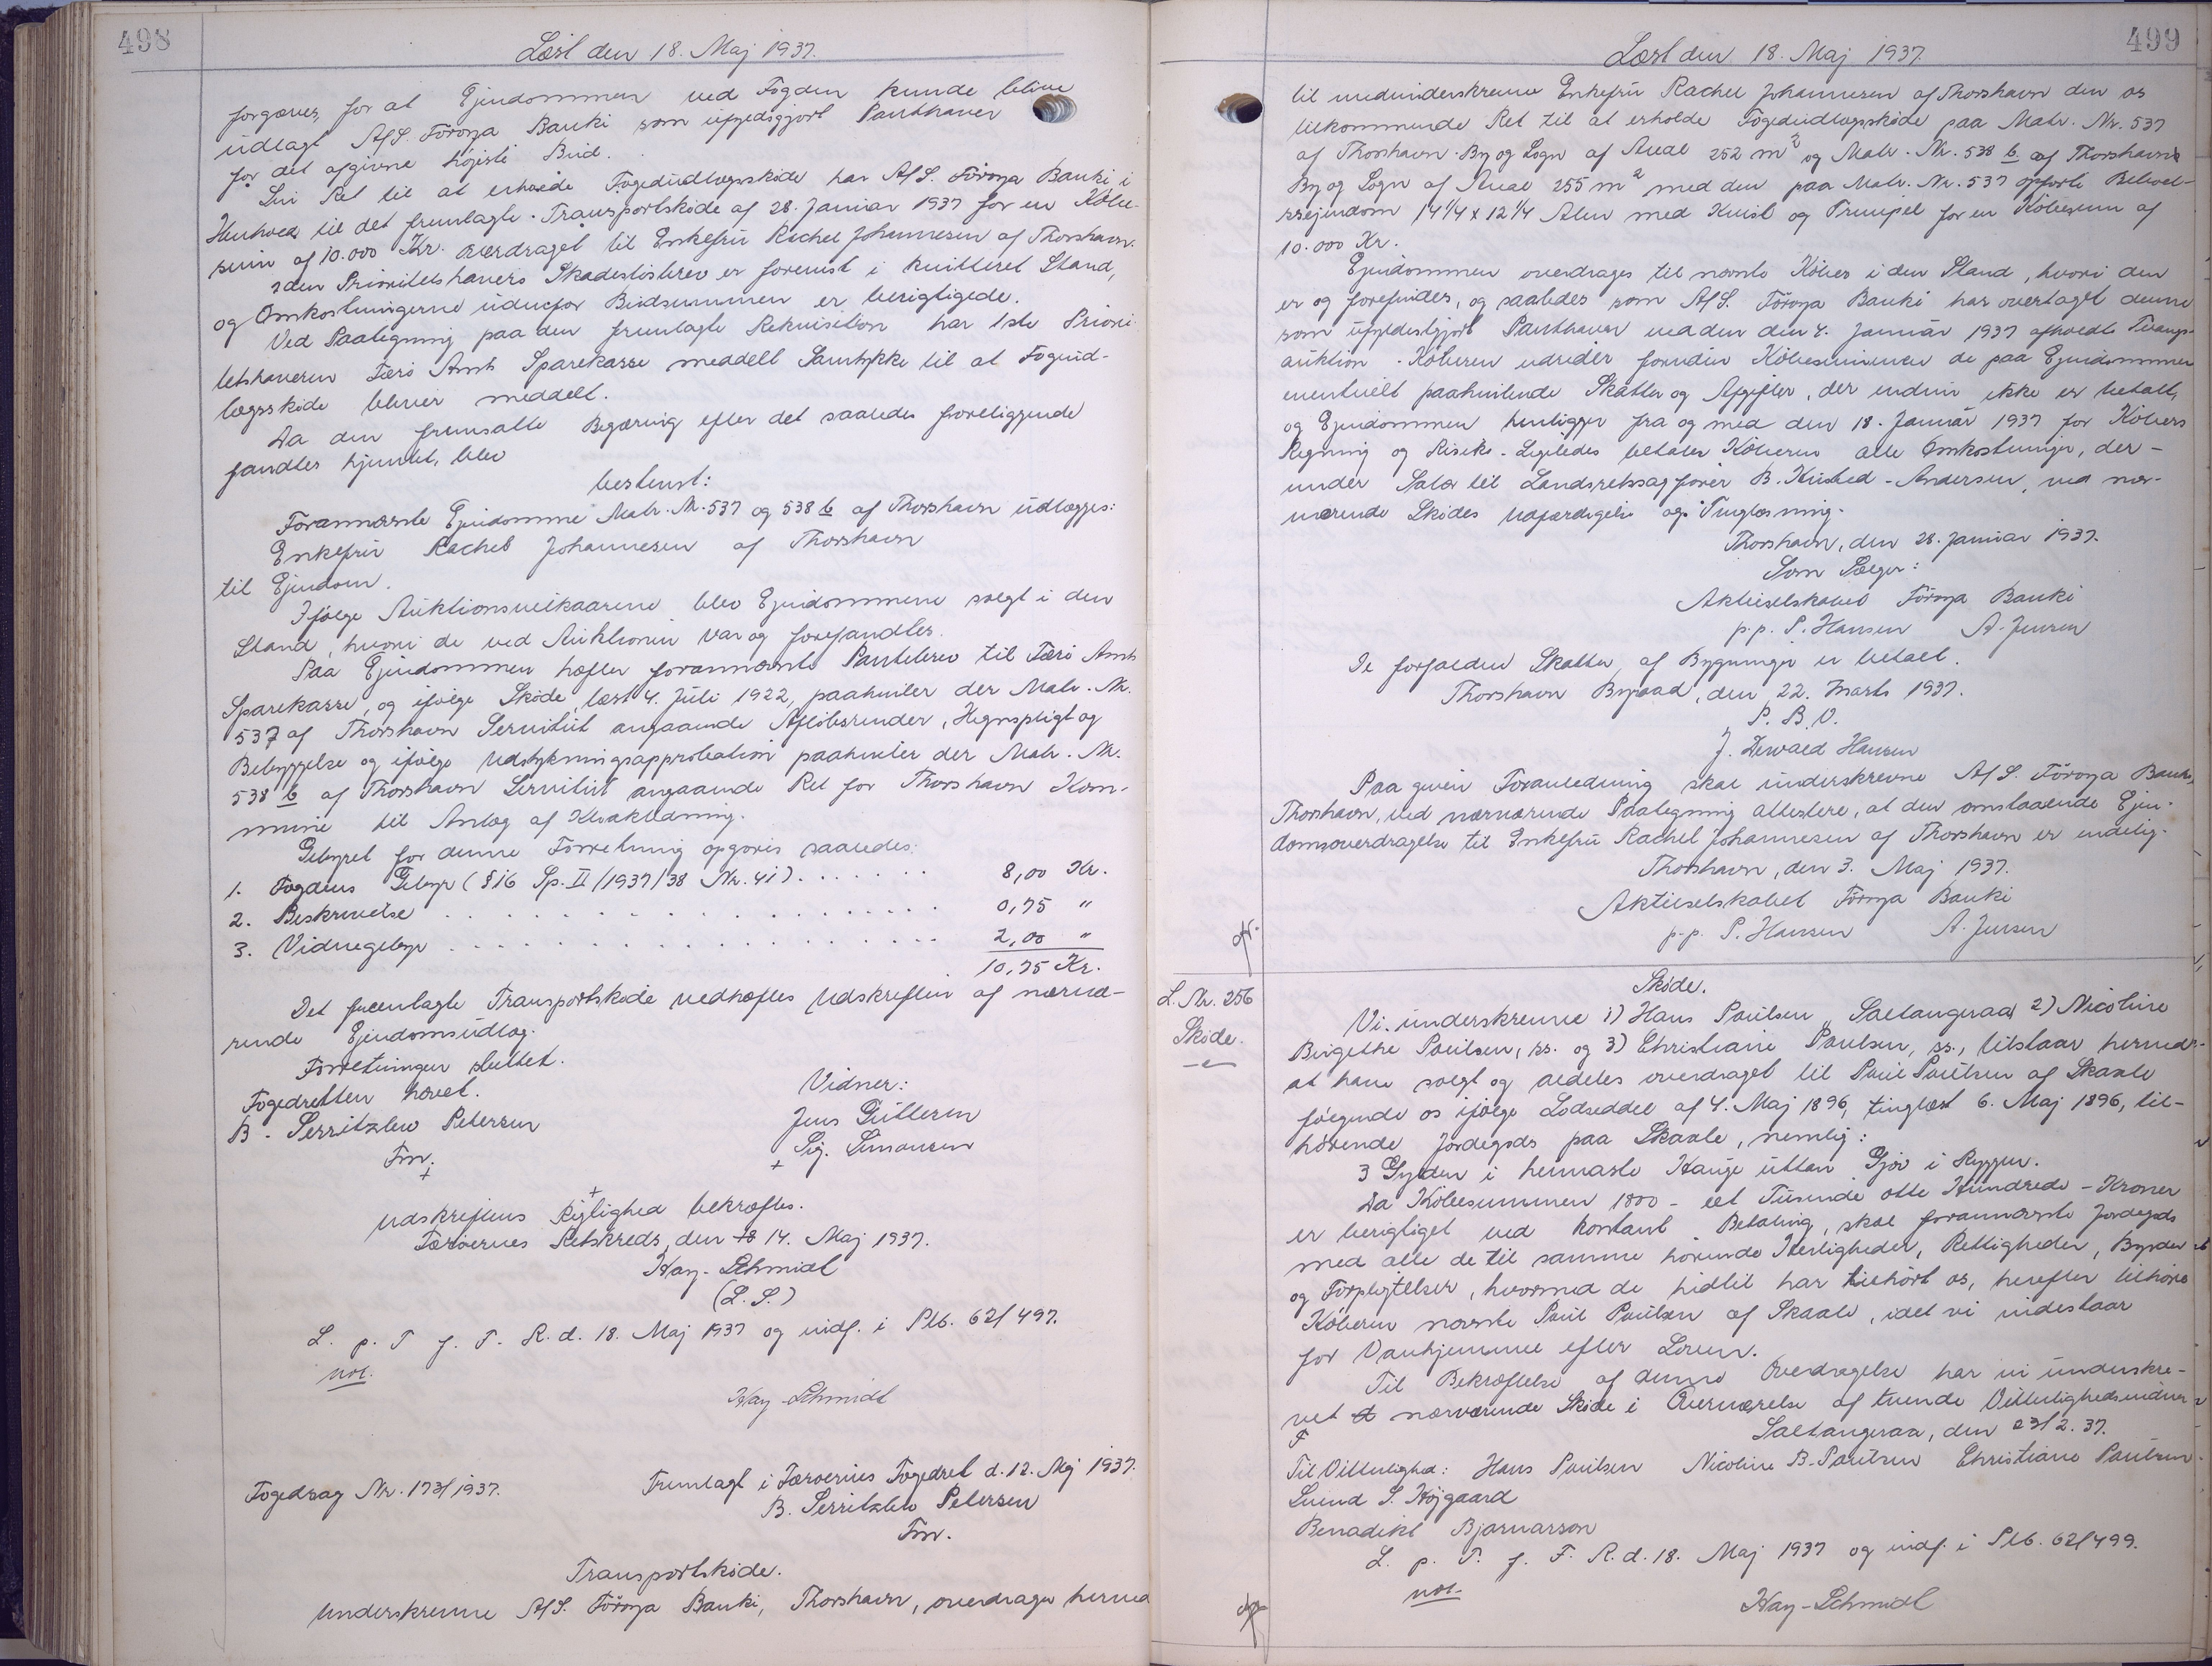 498
Læst den 18. Maj 1937.
forgæves, for at Ejendommen ved Fogden kunde blive
udlagt A/S. Föroya Banki som ufyldesgjort Panthaver
for det afgivne højeste Bud.
Sin Ret til at erholde Fogedudlægsskøde har A/S. Föroya Banki i
Henhold til det fremlagte Transportskøde af 28. Januar 1937 for en Købe-
sum af 10.000 Kr. overdraget til Enkefru Rachel Johannesen af Thorshavn.
2den Prioritetshavers Skadesløsbrev er forevist i kvitteret Stand,
og Omkostningerne udenfor Budsummen er berigtigede.
Ved Paategning paa den fremlagte Rekvisition har 1ste Priori-
tetshaveren Færø Amts Sparekasse meddelt Samtykke til at Fogeud-
lægsskøde bliver meddelt.
Da den fremsatte Begæring efter det saaledes foreliggende
fandtes hjemlet, blev
bestemt:
Forannævnte Ejendomme Matr. Nr. 537 og 538 b af Thorshavn udlægges:
Enkefru Rachel Johannesen af Thorshavn
til Ejendom.
Ifølge Auktionsvilkaarene blev Ejendommene solgt i den
Stand, hvori de ved Auktionen var og forefandtes.
Paa Ejendommen hæfter forannævnte Pantebrev til Færø Amts
Sparekasse, og ifølge Skøde, læst 4. Juli 1922, paahviler der Matr. Nr.
537 af Thorshavn Servitut angaaende Afløbsrender, Hegnspligt og
Bebyggelse og ifølge Udstykningsapprobation paahviler der Matr. Nr.
538 b af Thorshavn Servitut angaaende Ret for Thorshavn Kom-
mune til Anlæg af Kloakledning.
Gebyret for denne Forretning opgøres saaledes:
1. Fogdens Gebyr (§ 16 Sp. II/1937/38 Nr. 41) . . . . . . . 8,00 Kr.
2. Beskrivelse . . . . . . . . . . . . . . . . 0,75 "
3. Vidnegebyr . . . . . . . . . . . . . . . . 2,00 "
10,75 Kr.
Det fremlagte Transportskøde vedhæftes Udskriften af nærvæ-
rende Ejendomsudlæg.
Forretningen sluttet.
Fogedretten hævet.
Vidner:
B. Serritzlew Petersen
Jens Guttesen
Fm.
Sig. Simonsen
Udskriftens Rigtighed bekræftes.
Færøernes Retskreds, den 18 14. Maj 1937.
Hay-Schmidt
(L. S.)
L. p. T. f. F. R. d. 18. Maj 1937 og indf. i Ptb. 62/497.
not.
Hay-Schmidt
Fogedsag Nr. 173/1937.
Fremlagt i Færøernes Fogedret d. 12. Maj 1937.
B. Serritzlew Petersen
Fm.
Transportskøde.
Underskrevne A/S. Föroya Banki, Thorshavn, overdrager herved
499
Læst den 18. Maj 1937.
til medunderskrevne Enkefru Rachel Johannesen af Thorshavn den os
tilkommende Ret til at erholde Fogedudlægsskøde paa Matr. Nr. 537
af Thorshavn By og Sogn af Areal 252 m² og Matr. Nr. 538 b af Thorshavn
By og Sogn af Areal 255 m² med den paa Matr. Nr. 537 opførte Beboel-
sesejendom 14 1/4 x 12 1/4 Alen med Kvist og Frempel for en Købesum af
10.000 Kr.
Ejendommen overdrages til nævnte Køber i den Stand, hvori den
er og forefindes, og saaledes som A/S. Föroya Banki har overtaget denne
som ufyldestgjort Panthaver ved den den 4. Januar 1937 afholdte Tvangs-
auktion. Køberen udreder foruden Købesummen de paa Ejendommen
eventuelt paahvilende Skatter og Afgifter, der endnu ikke er betalt,
og Ejendommen henligger fra og med den 18. Januar 1937 for Købers
Regning og Risiko. Ligeledes betaler Køberen alle Omkostninger, der-
under Salær til Landsretssagfører B. Husted-Andersen, ved nær-
værende Skødes Udfærdigelse og Tinglæsning.
Thorshavn, den 28. Januar 1937.
Som Sælger:
Aktieselskabet Föroya Banki
p.p. P. Hansen A. Jensen
De forfaldne Skatter af Bygninger er betalt.
Thorshavn Byraad, den 22. Marts 1937.
P. B. V.
J. Dewald Hansen
Paa given Foranledning skal underskrevne A/S. Föroya Banki,
Thorshavn, ved nærværende Paategning attestere, at den omstaaende Ejen-
domsoverdragelse til Enkefru Rachel Johannesen af Thorshavn er endelig.
Thorshavn, den 3. Maj 1937.
Aktieselskabet Föroya Banki
p.p. P. Hansen A. Jensen
L. Nr. 256
Skøde.
Skøde.
Vi underskrevne 1) Hans Poulsen, Saltangeraa, 2) Nicoline
Birgethe Poulsen, ss. og 3) Christiane Poulsen, ss., tilstaar herved
at have solgt og aldeles overdraget til Poul Poulsen af Skaale
følgende os ifølge Lodseddel af 4. Maj 1896, tinglæst 6. Maj 1896, til-
hørende Jordegods paa Skaale, nemlig:
3 Gylden i heimasto Hauge uttan Gjov i Ryggen.
Da Købesummen 1800 - eet Tusinde otte Hundrede - Kroner
er berigtiget ved kontant Betaling, skal forannævnte Jordegods
med alle de til samme hørende Herligheder, Rettigheder, Byrder
og Forpligtelser, hvormed de hidtil har tilhørt os, herefter tilhøre
Køberen nævnte Poul Poulsen af Skaale, idet vi indestaar
for Vanhjemmel efter Loven.
Til Bekræftelse af denne Overdragelse har vi underskre-
vet nærværende Skøde i Overværelse af tvende Vitterlighedsvidner
Saltangeraa, den 23/2. 37.
Til Vitterlighed: Hans Poulsen Nicoline B. Poulsen Christiane Poulsen.
Svend S. Højgaard
Benadikt Bjarnarson
L. p. T. f. F. R. d. 18. Maj 1937 og indf. i Ptb. 62/499.
not.
Hay-Schmidt